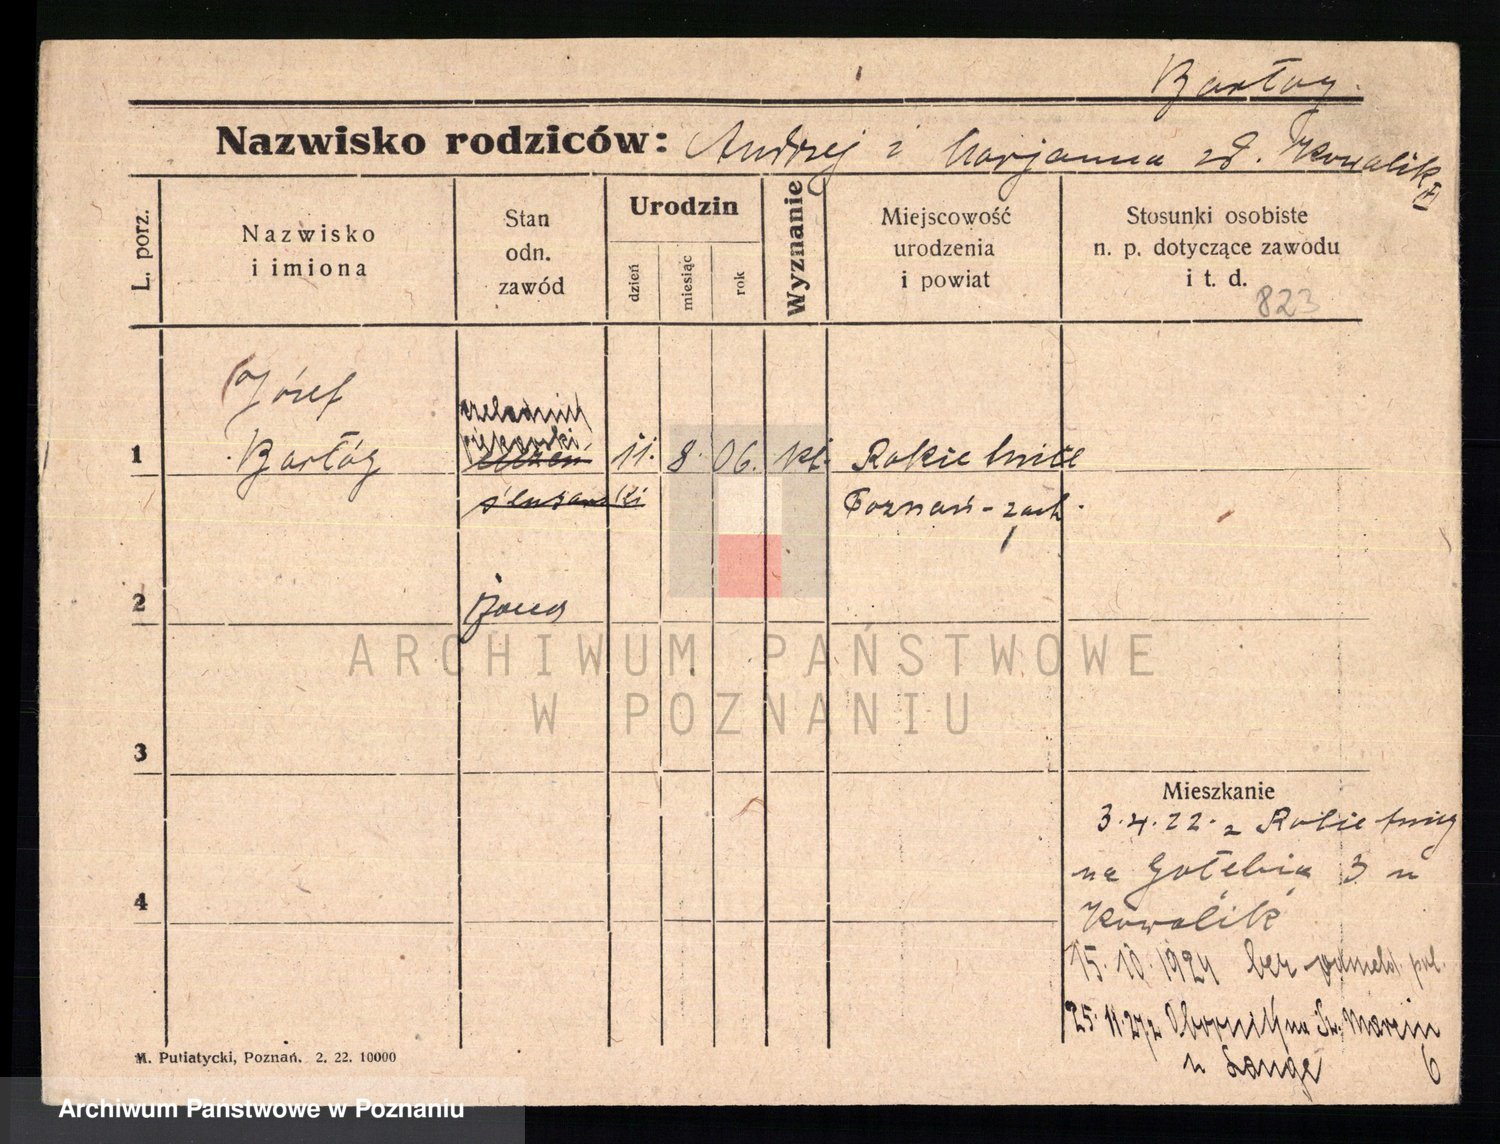 Bartłog.
Nazwisko rodziców: Andrzej i Marjanna zd. Kowalik
L. porz.
Nazwisko
i imiona
Stan
odn.
zawód
Urodzin
dzień
miesiąc
rok
Wyznanie
Miejscowość
urodzenia
i powiat
Stosunki osobiste
n. p. dotyczące zawodu
i t. d.
823
Józef
czeladnik
piekarski
1 Bartłóg uczeń 11. 8. 06. kt. Rokietnice
ślusarski Poznań-zach.
2
3
Mieszkanie
3.4.22. z Rokietnicy
na Gołębia 3 u
4
Kowalik
15.10.1924 bez odmeld. pol.
25.11.27 z Obornik na Św. Marcin
u Lange 6
M. Putiatycki, Poznań. 2. 22. 10000
ARCHIWUM PAŃSTWOWE
W POZNANIU
Archiwum Państwowe w Poznaniu